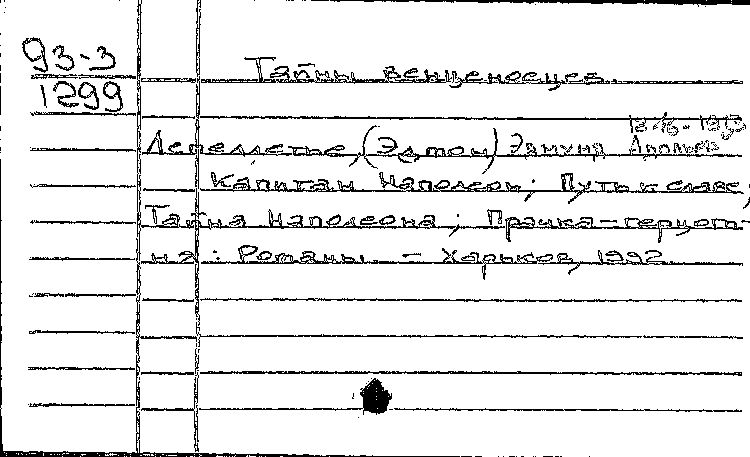 93-3
1299
Тайны венценосцев.
Лепеллетье, (Эдмон) Эдмунд Адольф
Капитан Наполеон; Путь к славе;
Тайна Наполеона; Прачка-герцоги-
ня: Романы. - Харьков, 1992.